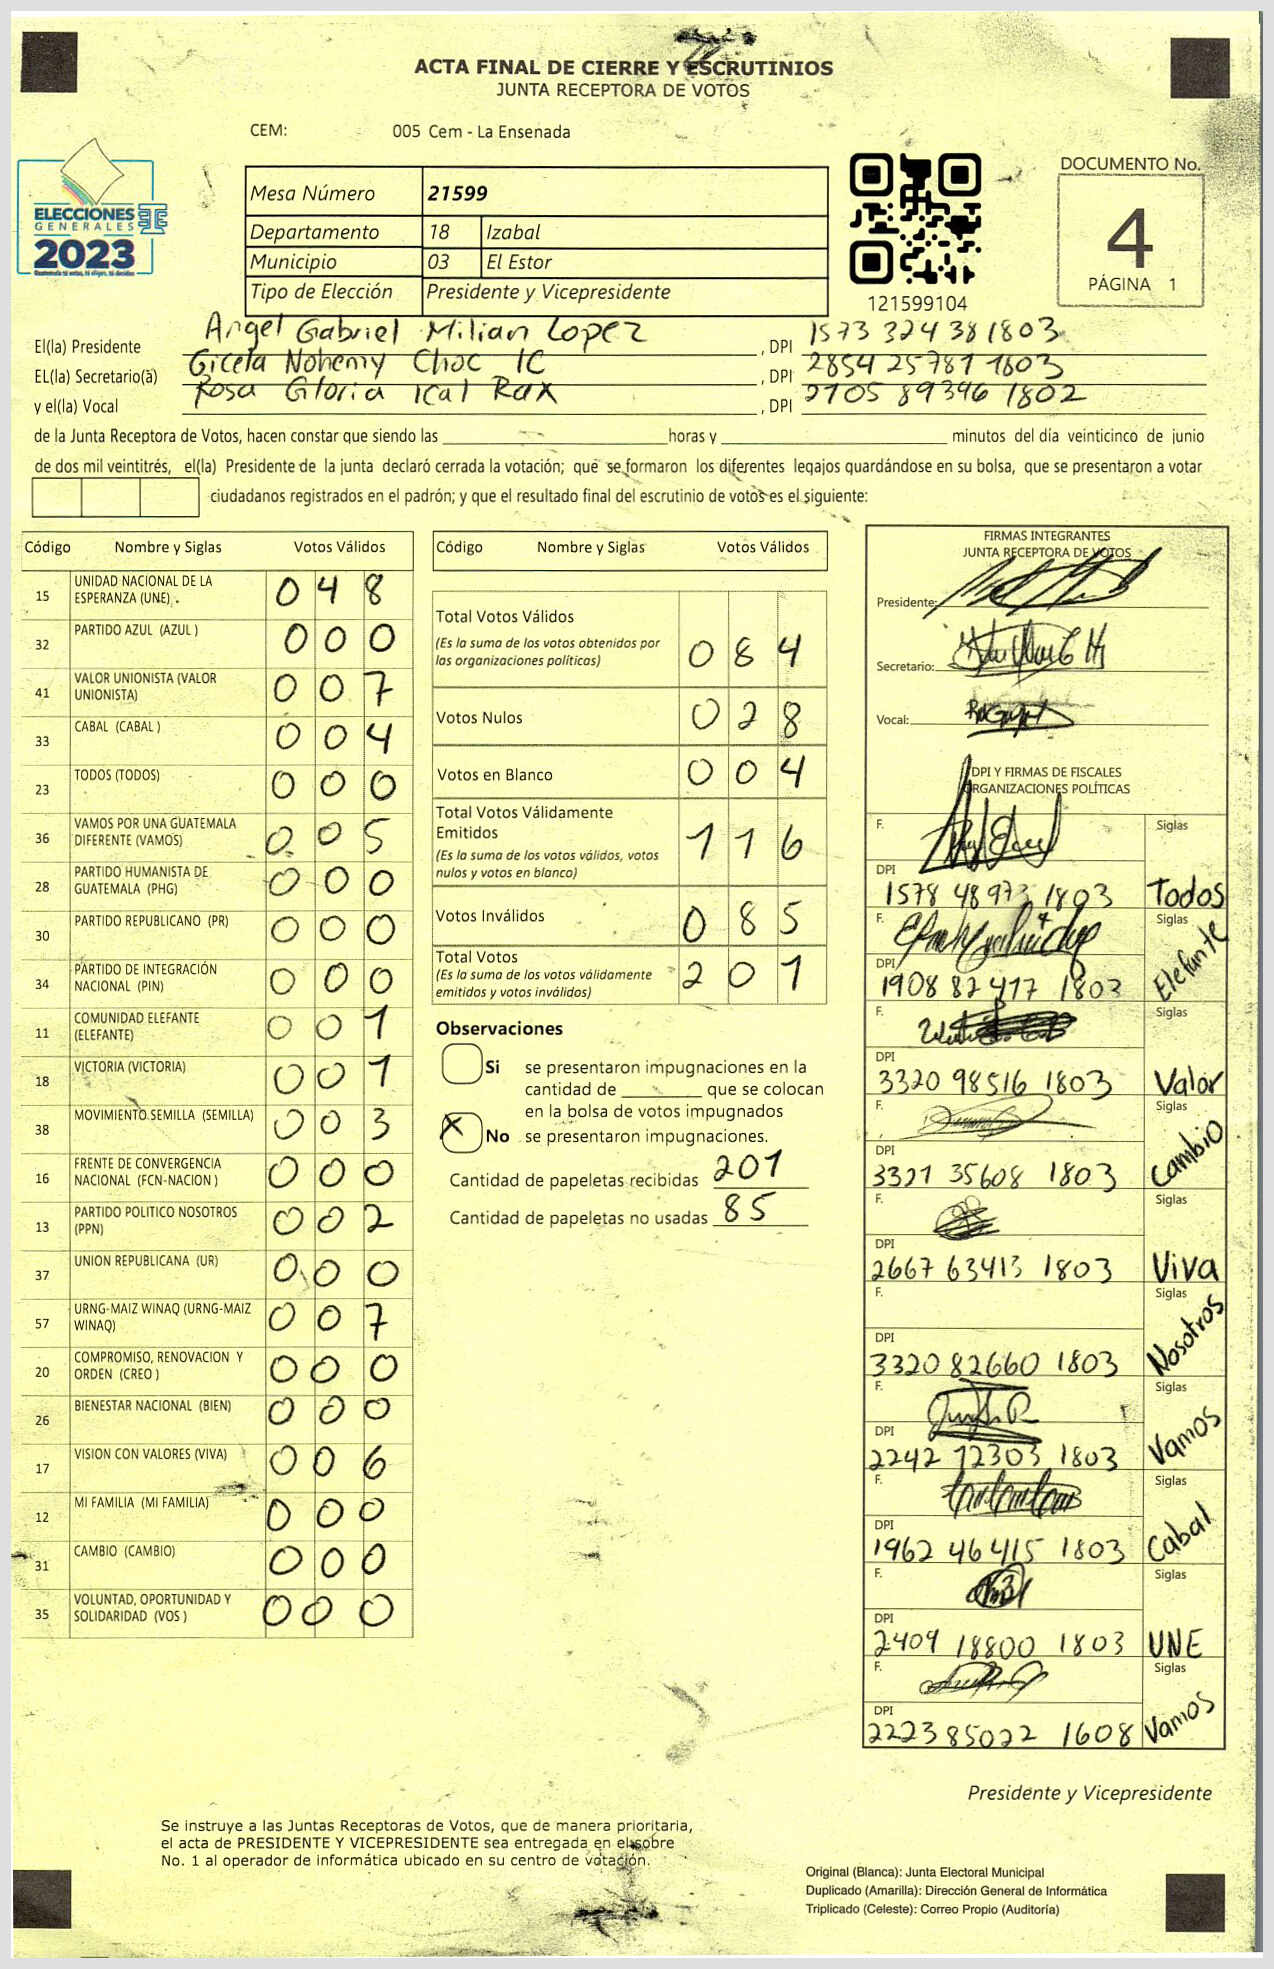 ACTA FINAL DE CIERRE Y ESCRUTINIOS
JUNTA RECEPTORA DE VOTOS
CEM: 005 Cem - La Ensenada
DOCUMENTO No.
4
PÁGINA 1
ELECCIONES
GENERALES
2023
Guatemala tú votas, tú eliges, tú decides
Mesa Número 21599
Departamento 18 Izabal
Municipio 03 El Estor
Tipo de Elección Presidente y Vicepresidente
121599104
El(la) Presidente Angel Gabriel Milian Lopez , DPI 1573 32438 1803
EL(la) Secretario(a) Gicela Nohemy Choc IC , DPI 2854 25781 1803
y el(la) Vocal Rosa Gloria Ical Rax , DPI 2705 89346 1802
de la Junta Receptora de Votos, hacen constar que siendo las ____ horas y ____ minutos del día veinticinco de junio
de dos mil veintitrés, el(la) Presidente de la junta declaró cerrada la votación; que se formaron los diferentes legajos guardándose en su bolsa, que se presentaron a votar
ciudadanos registrados en el padrón; y que el resultado final del escrutinio de votos es el siguiente:
Código Nombre y Siglas Votos Válidos
15 UNIDAD NACIONAL DE LA ESPERANZA (UNE) 0 4 8
32 PARTIDO AZUL (AZUL ) 0 0 0
41 VALOR UNIONISTA (VALOR UNIONISTA) 0 0 7
33 CABAL (CABAL ) 0 0 4
23 TODOS (TODOS) 0 0 0
36 VAMOS POR UNA GUATEMALA DIFERENTE (VAMOS) 0 0 5
28 PARTIDO HUMANISTA DE GUATEMALA (PHG) 0 0 0
30 PARTIDO REPUBLICANO (PR) 0 0 0
34 PARTIDO DE INTEGRACIÓN NACIONAL (PIN) 0 0 0
11 COMUNIDAD ELEFANTE (ELEFANTE) 0 0 1
18 VICTORIA (VICTORIA) 0 0 1
38 MOVIMIENTO SEMILLA (SEMILLA) 0 0 3
16 FRENTE DE CONVERGENCIA NACIONAL (FCN-NACION ) 0 0 0
13 PARTIDO POLITICO NOSOTROS (PPN) 0 0 2
37 UNION REPUBLICANA (UR) 0 0 0
57 URNG-MAIZ WINAQ (URNG-MAIZ WINAQ) 0 0 7
20 COMPROMISO, RENOVACION Y ORDEN (CREO ) 0 0 0
26 BIENESTAR NACIONAL (BIEN) 0 0 0
17 VISION CON VALORES (VIVA) 0 0 6
12 MI FAMILIA (MI FAMILIA) 0 0 0
31 CAMBIO (CAMBIO) 0 0 0
35 VOLUNTAD, OPORTUNIDAD Y SOLIDARIDAD (VOS ) 0 0 0
Código Nombre y Siglas Votos Válidos
Total Votos Válidos
(Es la suma de los votos obtenidos por
las organizaciones políticas) 0 8 4
Votos Nulos 0 2 8
Votos en Blanco 0 0 4
Total Votos Válidamente
Emitidos 1 1 6
(Es la suma de los votos válidos, votos
nulos y votos en blanco)
Votos Inválidos 0 8 5
Total Votos
(Es la suma de los votos válidamente
emitidos y votos inválidos) 2 0 1
Observaciones
Si se presentaron impugnaciones en la
cantidad de ____ que se colocan
en la bolsa de votos impugnados
X No se presentaron impugnaciones.
Cantidad de papeletas recibidas 201
Cantidad de papeletas no usadas 85
FIRMAS INTEGRANTES
JUNTA RECEPTORA DE VOTOS
Presidente:
Secretario:
Vocal:
DPI Y FIRMAS DE FISCALES
ORGANIZACIONES POLÍTICAS
F. Siglas
DPI 1578 48973 1803 Todos
F. Siglas
DPI 1908 82417 1803 Elefante
F. Siglas
DPI 3320 98516 1803 Valor
F. Siglas
DPI 3321 35608 1803 Cambio
F. Siglas
DPI 2667 63413 1803 Viva
F. Siglas
DPI 3320 82660 1803 Nosotros
F. Siglas
DPI 2242 72303 1803 Vamos
F. Siglas
DPI 1962 46415 1803 Cabal
F. Siglas
DPI 2409 18800 1803 UNE
F. Siglas
DPI 2223 85022 1608 Vamos
Presidente y Vicepresidente
Se instruye a las Juntas Receptoras de Votos, que de manera prioritaria,
el acta de PRESIDENTE Y VICEPRESIDENTE sea entregada en el sobre
No. 1 al operador de informática ubicado en su centro de votación.
Original (Blanca): Junta Electoral Municipal
Duplicado (Amarilla): Dirección General de Informática
Triplicado (Celeste): Correo Propio (Auditoría)